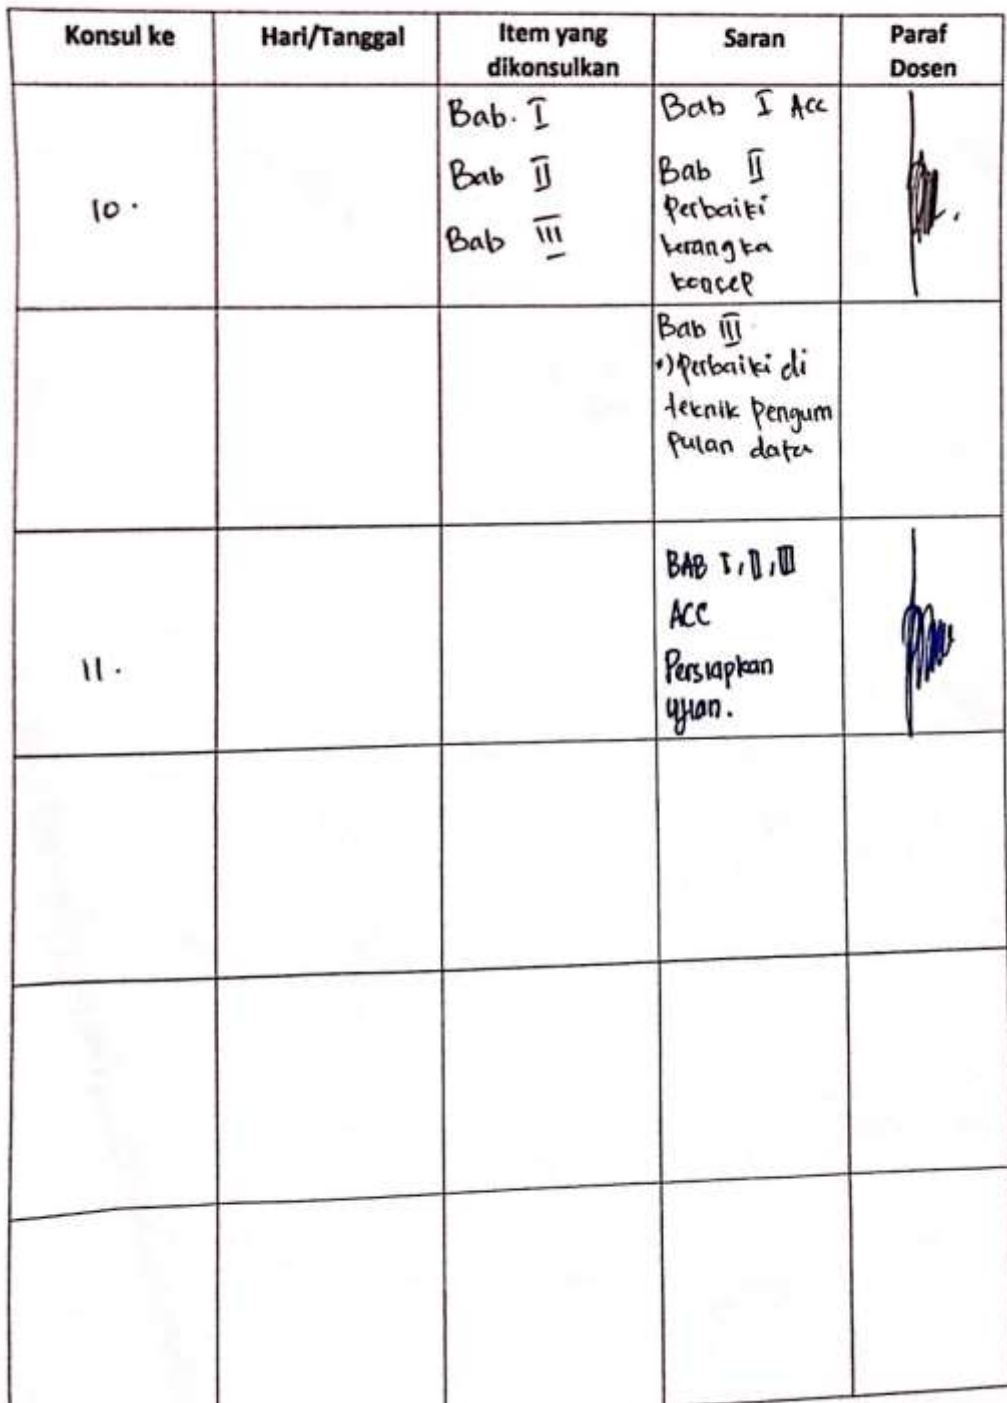 Konsul ke Hari/Tanggal Item yang dikonsulkan Saran Paraf Dosen
10.
Bab. I
Bab II
Bab III
Bab I Acc
Bab II
Perbaiki
kerangka
koncep
Bab III
•) Perbaiki di
teknik Pengum
pulan data
11.
BAB I, II, III
ACC
Persiapkan
ujian.